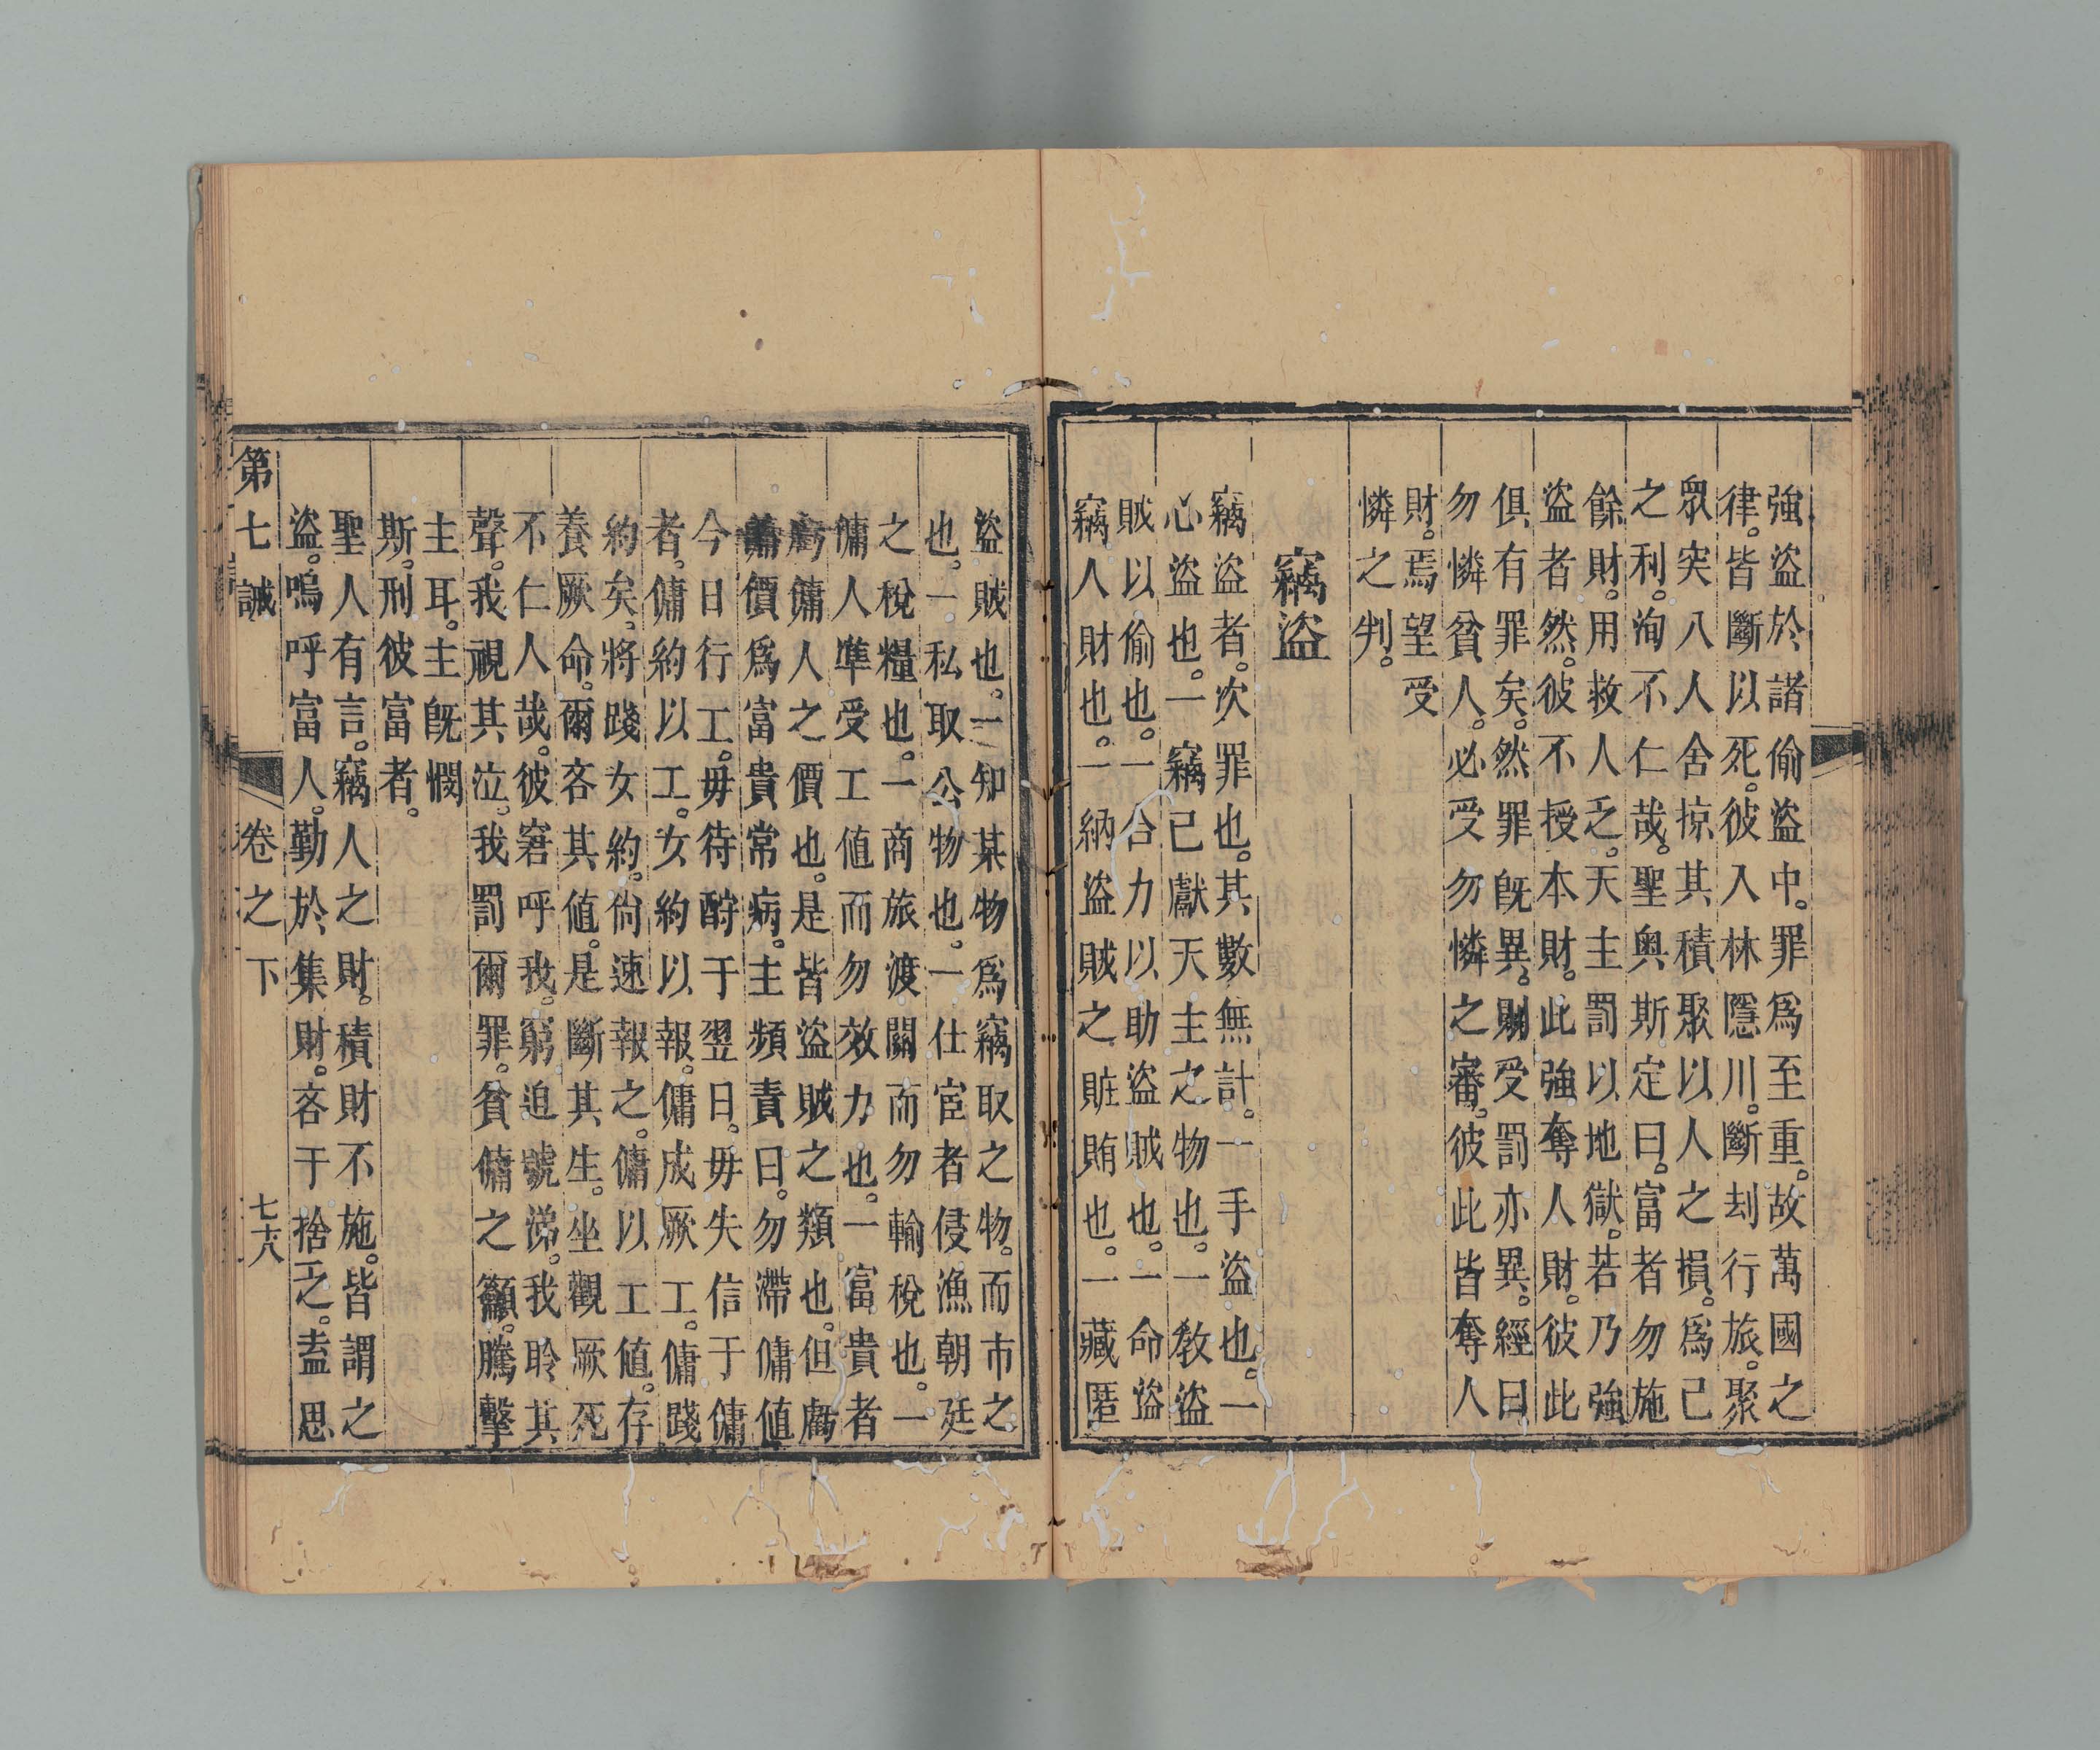 強盜於諸偷盜中。罪爲至重。故萬國之
律。皆斷以死。彼入林隱川。斷刦行旅。聚
眾突八人舍掠其積聚以人之損。爲己
之利。洵不仁哉。聖奥斯定曰。富者勿施
餘財。用救人乏。天主罰以地獄。若乃強
盜者然。彼不授本財。此強奪人財。彼此
俱有罪矣。然罪旣異。則受罰亦異。經曰
勿憐貧人。必受勿憐之審。彼此皆奪人
財。焉望受
憐之判。
竊盜
竊盜者。次罪也。其數無計。一手盜也。一
心盜也。一竊己獻天主之物也。一教盜
賊以偷也。一合力以助盜賊也。一命盜
竊人財也。一納盜賊之賍賄也。一藏匿
盜賊也。一知某物爲竊取之物。而市之
也。一私取公物也。一仕宦者侵漁朝廷
之稅糧也。一商旅渡關而勿輸稅也。一
傭人準受工値而勿效力也。一富貴者
虧傭人之價也。是皆盜賊之類也。但虧
傭價爲富貴常病。主頻責曰。勿滯傭値
今日行工。毋待酧于翌日。毋失信于傭
者。傭約以工。女約以報。傭成厥工。傭踐
約矣。將踐女約。尙速報之。傭以工値。存
養厥命。爾吝其値。是斷其生。坐觀厥死
不仁人哉。彼窘呼我。窮迫號涕。我聆其
聲。我視其泣。我罰爾罪。貧傭之籲。騰擊
主耳。主旣憫
斯。刑彼富者。
聖人有言。竊人之財。積財不施。皆謂之
盜。嗚呼富人。勤於集財。吝于捨乏。盍思
第七誡 卷之下 七十八